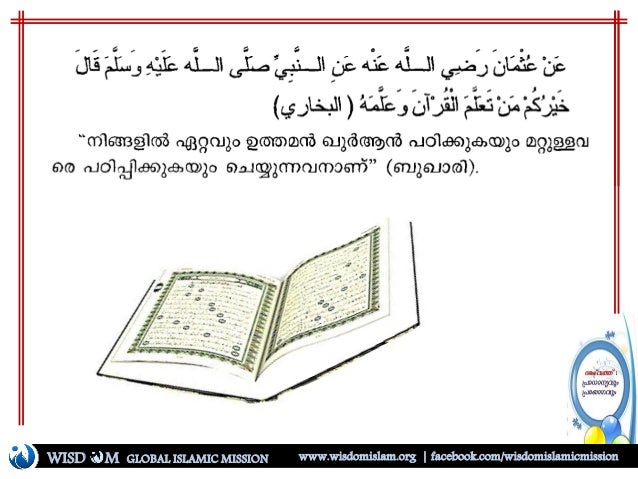 عَنْ عُثْمَانَ رَضِي الـــلَّه عَنْه عَنِ الـــنَّبِيِّ صَلَّى الـــلَّه عَلَيْهِ وَسَلَّمَ قَالَ
خَيْرُكُمْ مَنْ تَعَلَّمَ الْقُرْآنَ وَعَلَّمَهُ ( البخاري)
“നിങ്ങളിൽ ഏറ്റവും ഉത്തമൻ ഖുർആൻ പഠിക്കുകയും മറ്റുള്ളവ
രെ പഠിപ്പിക്കുകയും ചെയ്യുന്നവനാണ്” (ബുഖാരി).
പ്രാധാന്യവും
WISD M GLOBAL ISLAMIC MISSION www.wisdomislam.org | facebook.com/wisdomislamicmission